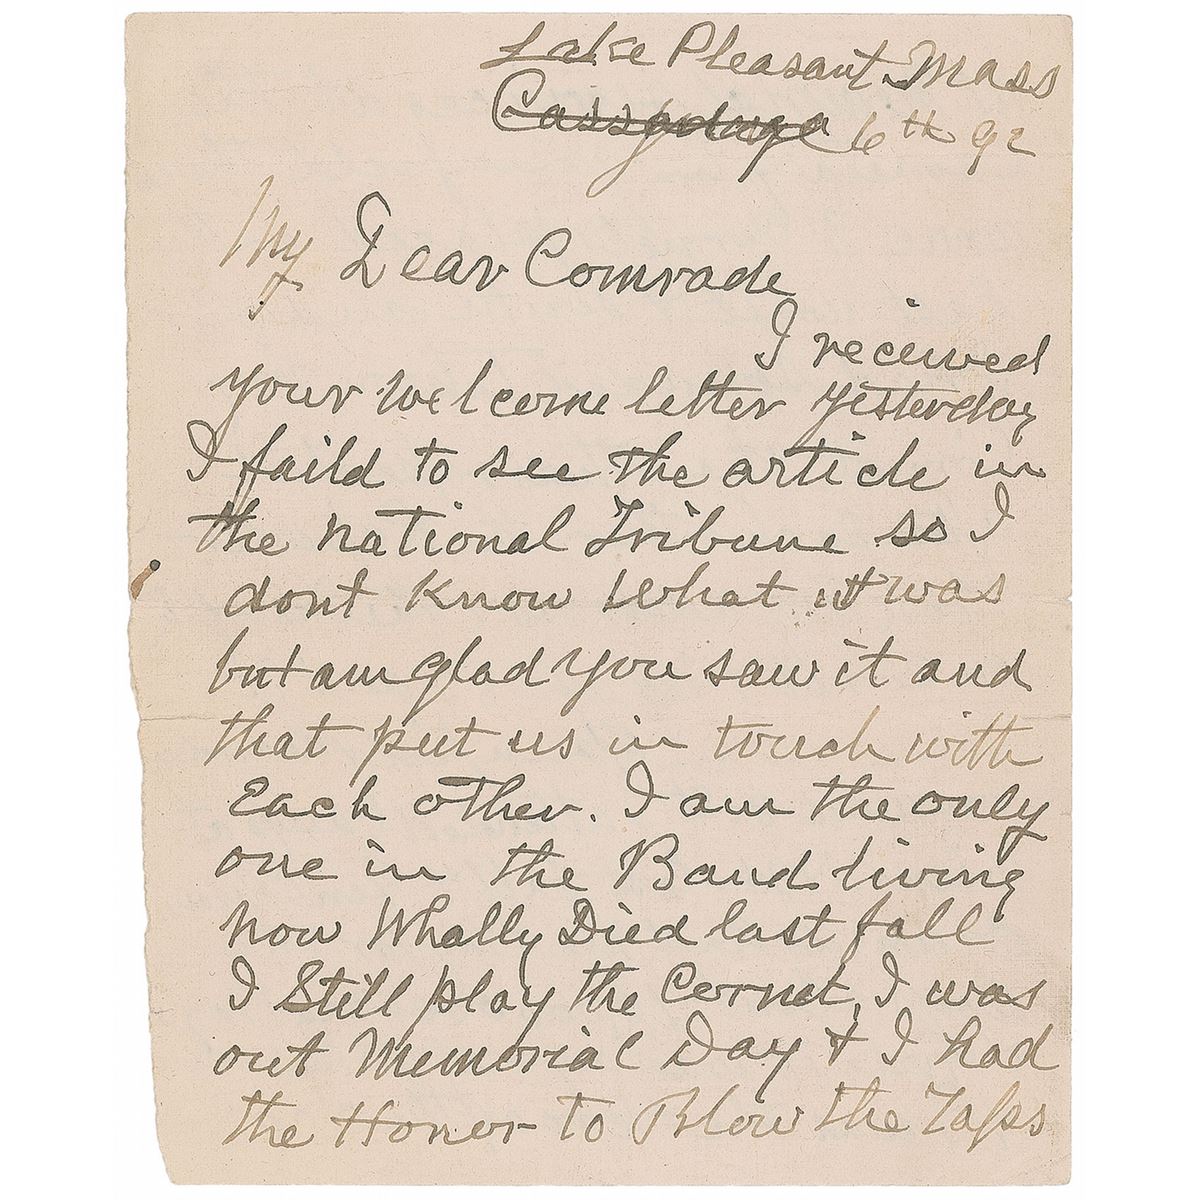 Lake Pleasant Mass
6th 92
My Dear Comrade
I received
your welcome letter yesterday
I faild to see the article in
the National Tribune so I
dont Know What it was
but am glad you saw it and
that put us in touch with
Each other. I am the only
one in the Band living
now Whally Died last fall
I Still play the Cornet, I was
out Memorial Day & I had
the Honor to Blow the Taps